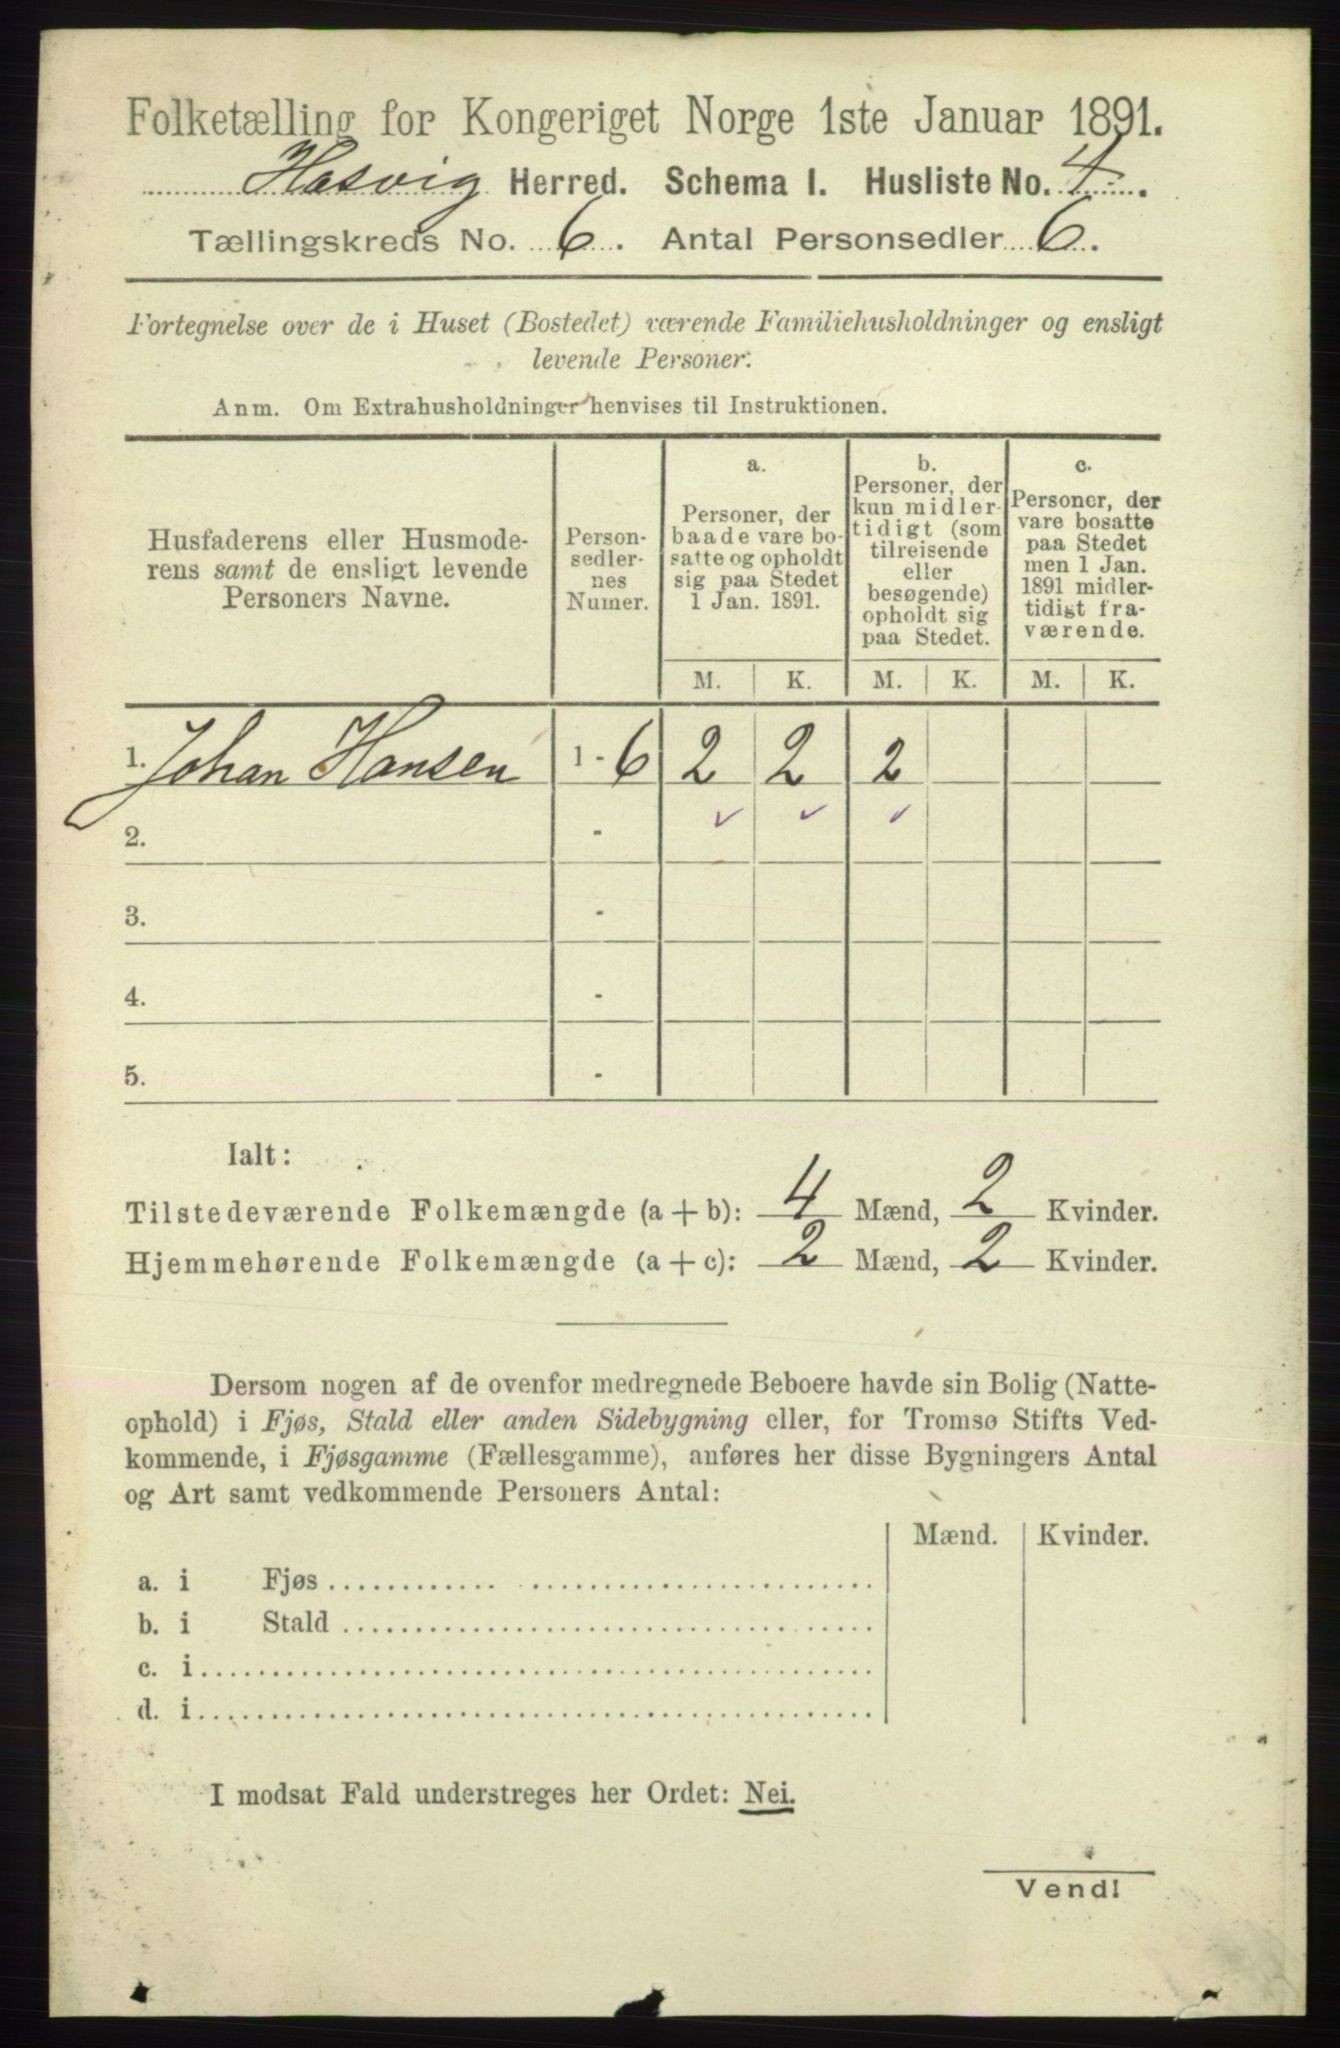 Folketælling for Kongeriget Norge 1ste Januar 1891.
Hasvig Herred. Schema I. Husliste No. 4.
Tællingskreds No. 6. Antal Personsedler 6.
Fortegnelse over de i Huset (Bostedet) værende Familiehusholdninger og ensligt
levende Personer.
Anm. Om Extrahusholdninger henvises til Instruktionen.
Husfaderens eller Husmode-
rens samt de ensligt levende
Personers Navne.
Person-
sedler-
nes
Numer.
a.
Personer, der
baade vare bo-
satte og opholdt
sig paa Stedet
1 Jan. 1891.
b.
Personer, der
kun midler-
tidigt (som
tilreisende
eller
besøgende)
opholdt sig
paa Stedet.
c.
Personer, der
vare bosatte
paa Stedet
men 1 Jan.
1891 midler-
tidigt fra-
værende.
M. K. M. K. M. K.
1. Johan Hansen 1 - 6 2 2 2
2. -
3. -
4. -
5. -
Ialt:
Tilstedeværende Folkemængde (a + b): 4 Mænd, 2 Kvinder.
Hjemmehørende Folkemængde (a + c): 2 Mænd, 2 Kvinder.
Dersom nogen af de ovenfor medregnede Beboere havde sin Bolig (Natte-
ophold) i Fjøs, Stald eller anden Sidebygning eller, for Tromsø Stifts Ved-
kommende, i Fjøsgamme (Fællesgamme), anføres her disse Bygningers Antal
og Art samt vedkommende Personers Antal:
Mænd. Kvinder.
a. i Fjøs
b. i Stald
c. i
d. i
I modsat Fald understreges her Ordet: Nei.
Vend!